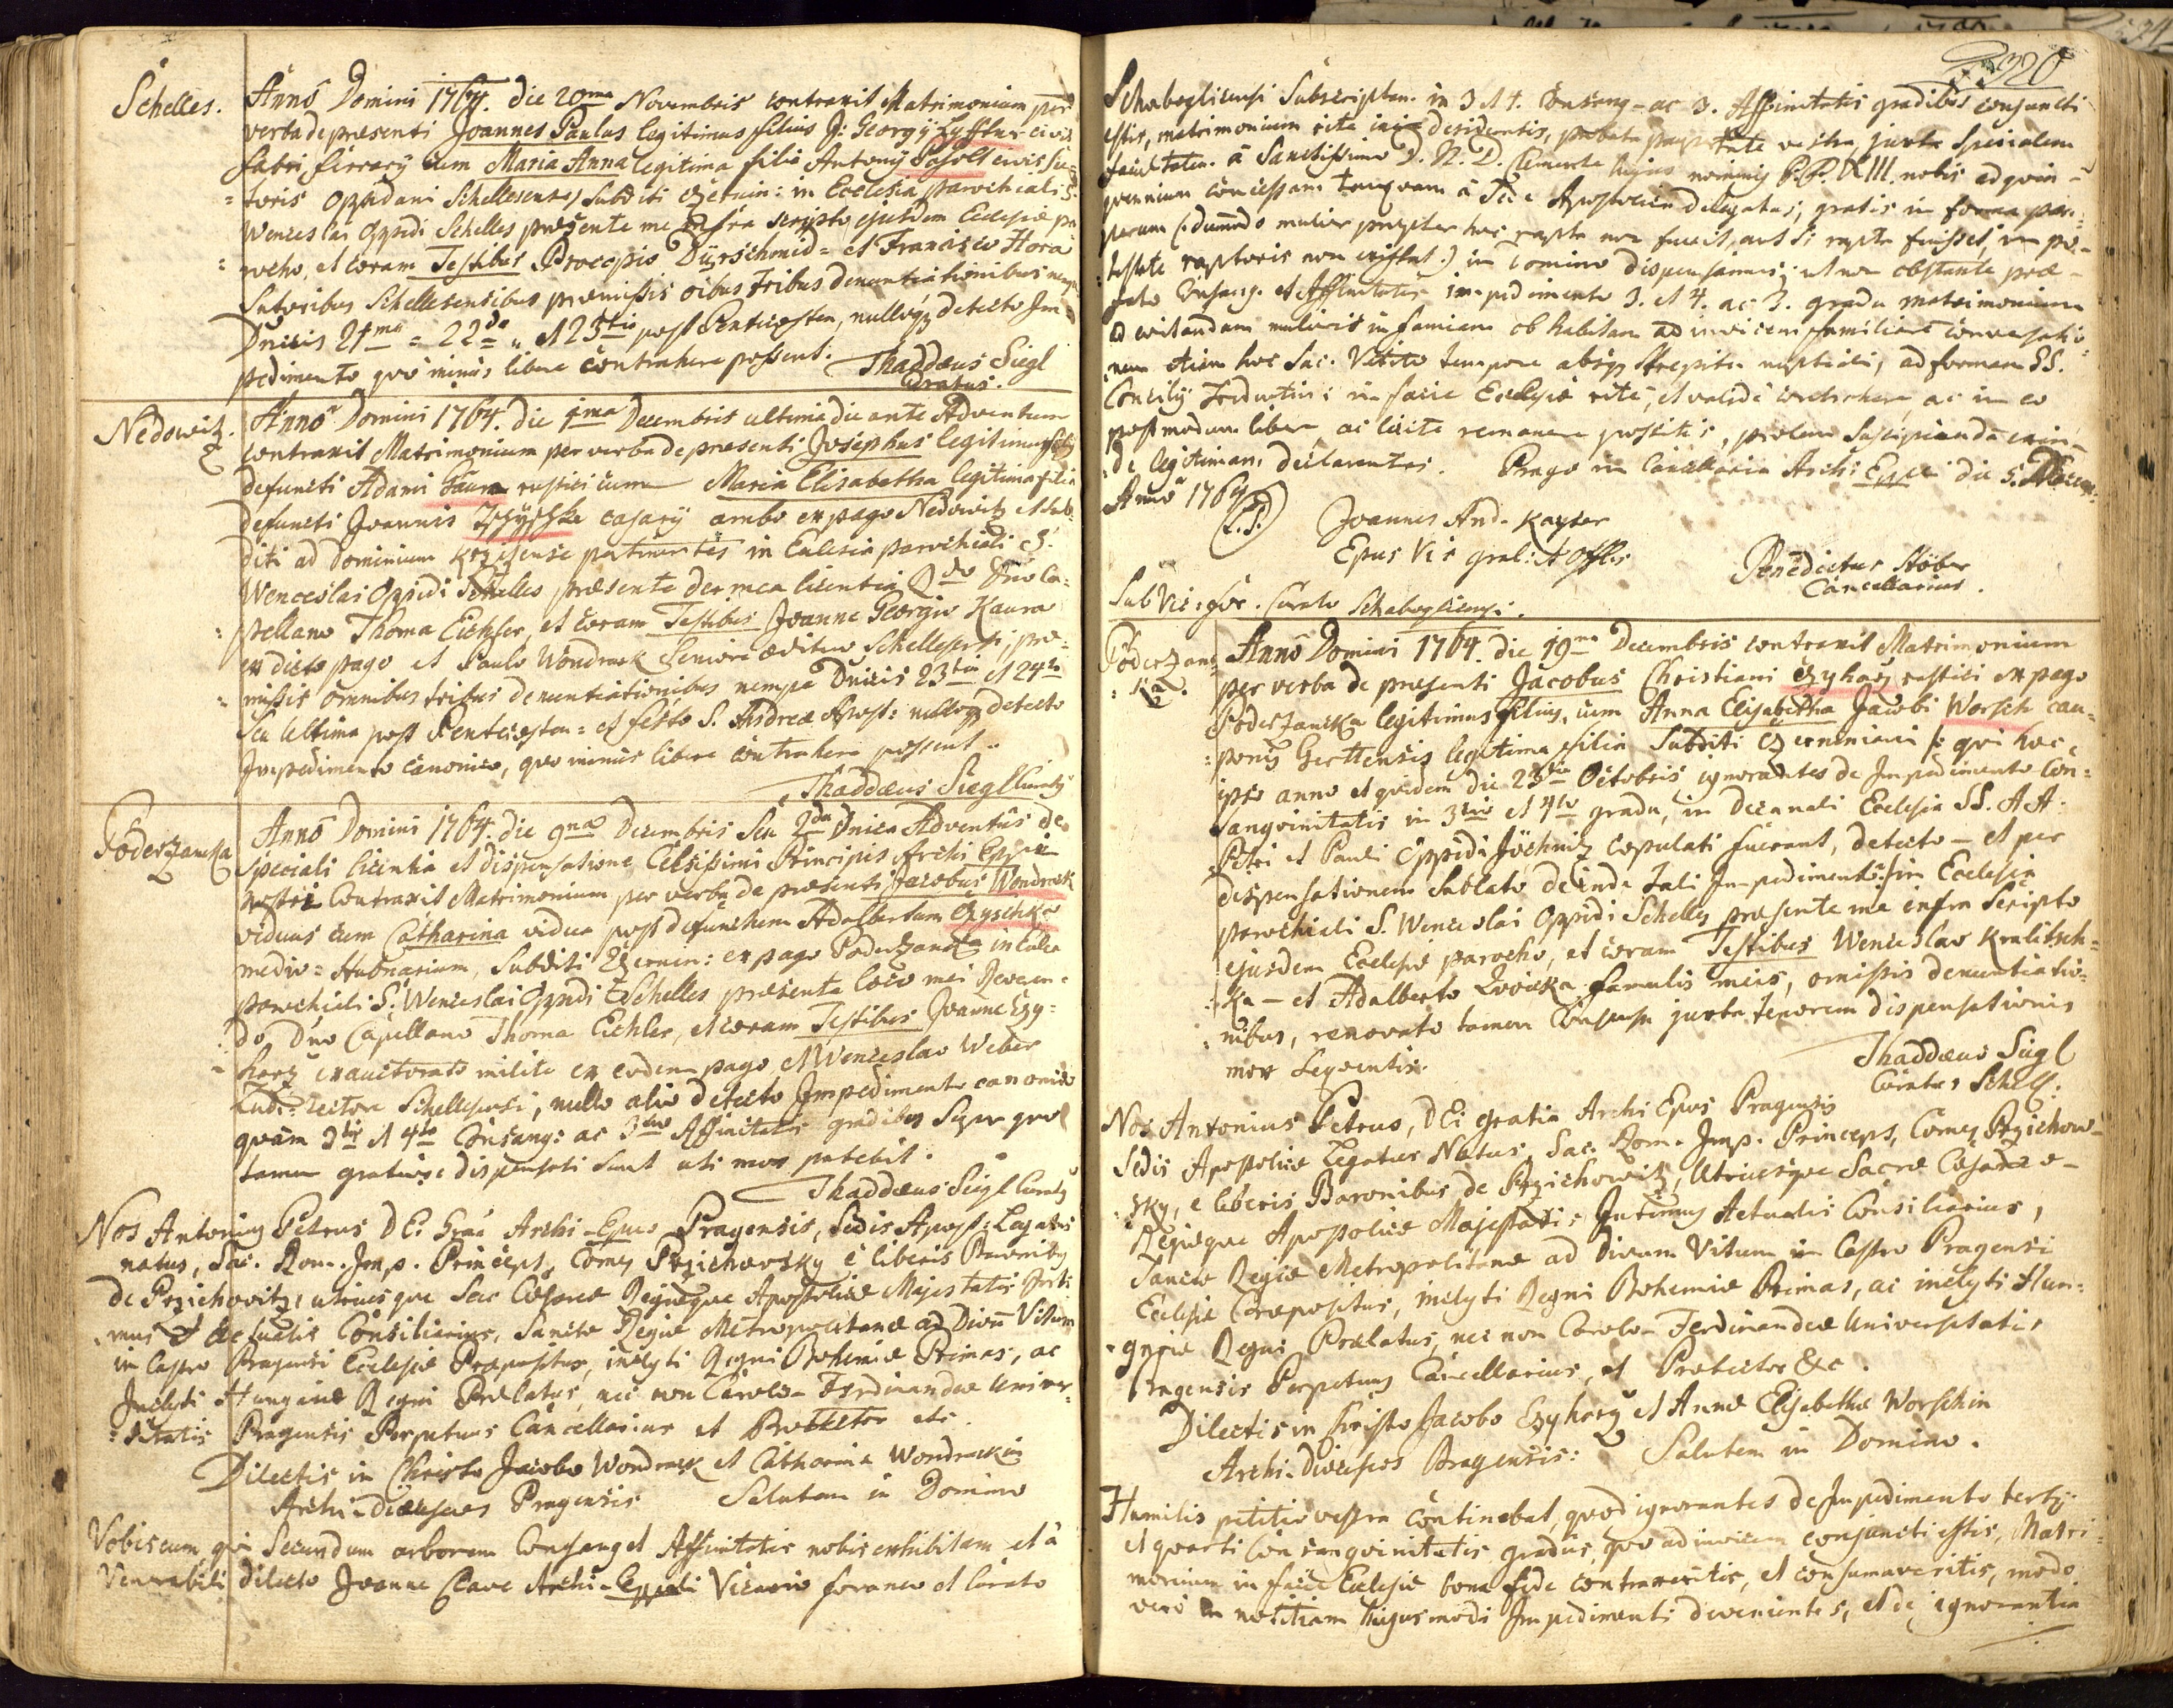 Schelles.
Anno Domini 1764. die 20ma Novembris contraxit Matrimonium per
verba de praesenti Joannes Paulus legitimus filius J: Georgÿ Zyfftner civis
fabri ferrarÿ cum Maria Anna legitima filia Antonÿ Pasolt civis Su-
=toris Oppidani Schellesenses Subditi Czernin: in Ecclesia parochiali S:
Wenceslai Oppidi Schelles praesente me infra scripto ejusdem Ecclesiae pa
=rocho, et coram Testibus Procopio Dÿrschmid= et Francisco Hora
Sutoribus Schellesensibus praemissis oibus tribus denuntiationibus nempe
Dnicis 21ma = 22da „ et 23tia post Pentecosten, nulloqz detecto Im=
pedimento quo minus libere contrahere possent. Thaddaeus Siegl
Curatus.
Nedowitz.
Anno Domini 1764. die 1ma Decembris ultima die ante Adventum
contraxit Matrimonium per verba de praesenti Josephus legitimus filius
defuncti Adami Faura rustici cum Maria Elisabetha legitima filia
defuncti Joannis casarÿ ambo ex pago Nedowitz et Sub-
diti ad Dominium pertinentes in Ecclesia parochiali S.
Wenceslai Oppidi Schelles praesente de mea licentia Rdo Dno Ca=
=pellano Thoma Eichler, et coram Testibus Joanne Georgio Kaura
ex dicto pago et Paulo Wondrack Seniore aedituo Schellesensi prae=
=missis omnibus tribus denuntiationibus nempe Dnicis 23tia et 24ta
Seu Ultima post Pentecosten = et festo S. Andreae Apost: nulloqz detecto
Impedimento canonico, quo minus libere contrahere possent..
Thaddaeus Siegl Curatus
Poderzancka
Anno Domini 1764. die 9na Decembris Seu 2da Dnica Adventûs de
Speciali licentia et dispensatione Celsissimi Principis Archi Eppi
nostri Contraxit Matrimonium per verba de praesenti Jacobus Wondrack
viduus cum Catharina vidua post defunctum Adalbertum Czyschka
medio= Hubnarium, Subditi Czernin: ex pago Poderzancka in Eccla
parochiali S: Wenceslai Oppidi Schelles praesente loco mei Reveren=
do Dno Capellano Thoma Eichler, et coram Testibus Joanne Czy=
=harz exauctorato milite ex eodem pago et Wenceslao Weber
Ludi=rectore Schellesensi, nullo alio detecto Impedimento canonico
quam 3tii et 4to Consang: ac 3tio Affinitatis gradibus Super quo
tamen gratiose dispensati Sunt uti mox patebit.
Thaddaeus Siegl Curatus
Nos Antonius Petrus DEi Graa Archi-Epus Pragensis, Sedis Apost: Legatus
natus, Sac. Rom. Imp. Princeps, Comes Przichowsky è liberis Baronibus
de Przichowitz, utriusque Sac Caesareae Regiaeque Apostolicae Majestatis Inti
=mus Actualis Consiliarius, Sanctae Regiae Metropolitanae ad Divû Vitum
in Castro Pragensi Ecclesiae Praepositus, inclyti Regni Bohemiae Primas, ac
Inclyti Hungariae Regni Praelatus, nec non Carolo-Ferdinandeae Univer=
=sitatis Pragensis Perpetuus Cancellarius et Protector etc.
Dilectis in Christo Jacobo Wondrack et Catharina Wondrackin
Archi-Dioeceseos Pragensis Salutem in Domino
Vobiscum, qui Secundum arborem Consang et Affinitatis nobis exhibitam et à
Venerabili dilecto Joanne Clave Archi-Eppali Vicario foraneo et Curato
320
Schaboglicensi Subscriptam in 3 et 4. Consang- ac 3. Affinitatis gradibus conjuncti
estis, matrimonium rite inire desiderantis, probata paupertate vestra, juxta Specialem
facultatem à Sanctissimo D. N. D. Clemente hujus nominis P.P. XIII. nobis ad quin-
quennium concessam tanquam à Sede Apostolica Delegatus, gratis in forma pau=
perum (:dummodo mulier propter hoc rapta non fuerit, aut si rapta fuisset, in po-
testate raptoris non existat.) in Domino dispensamus; ut non obstante prae-
fato Consang. et Affinitatis impedimento 3. et 4. ac 3. gradu matrimonium
ad evitandam mulieris infamiam ob habitam ad invicem familiarem conversatio-
nem etiam hoc Sac. Vetito tempore absqz Strepitu nuptiali, ad formam SS.
Concilÿ Tridentini in facie Ecclesiae rite, et valide contrahere, ac in eo
postmodum libere ac licite remanere possitis, prolem Suscipiendâ exin-
de legitimam declarantes. Pragae in Cancellaria Archi-Eppli die 5. Decem:
Anno 1764
(L.S.) Joannes And. Kayser
Epus Vic gral: et Offlis
Benedictus Stöber
Cancellarius.
Sub Vic: for. Curato Schaboglicensi.
Poderzanc
=ka.
Anno Domini 1764. die 19na Decembris contraxit Matrimonium
per verba de praesenti Jacobus Christiani Czyharz rustici ex pago
Poderzancka legitimus filius, cum Anna Elisabetha Jacobi Worsch cau-
=ponis Gerttensis legitima filia Subditi Czerniniani /: qui hoc
ipso anno et quidem die 23tia Octobris ignorantes de Impedimento Con=
sanguinitatis in 3tio et 4to gradu, in Decanali Ecclesia SS. AA.
Petri et Pauli Oppidi Jöchnitz copulati fuerant, detecto - et per
dispensationem Sublato deinde tali Impedimento:/ in Ecclesia
parochiali S. Wenceslai Oppidi Schelles praesente me infra Scripto
ejusdem Ecclesiae parocho, et coram Testibus Wenceslao Kralitsch=
=ka - et Adalberto Zwicka famulis meis, omissis denuntiatio=
=nibus, renovato tamen Consensu juxta tenorem dispensationis
mox Sequentis.
Thaddaeus Siegl
Curatus Schell:
Nos Antonius Petrus, DEi gratia Archi Epus Pragensis
Sedis Apostolicae Legatus Natus, Sac. Rom. Imp. Princeps, Comes Przichow-
=sky, è liberis Baronibus de Przichowitz, Utriusque Sacrae Caesareae-
Regiaeque Apostolicae Majestatis Intimus Actualis Consiliarius,
Sanctae Regiae Metropolitanae ad Divum Vitum in Castro Pragensi
Ecclesiae Praepositus, inclyti Regni Bohemiae Primas, ac inclyti Hun=
=gariae Regni Praelatus, nec non Carolo-Ferdinandeae Universitatis
Pragensis Perpetuus Cancellarius, et Protector &c.
Dilectis in Christo Jacobo Czyharz et Annae Elisabethae Worschin
Archi-Dioeceseos Pragensis: Salutem in Domino.
Humilis petitio vestra continebat, quod ignorantes de Impedimento tertÿ
et quarti Consanguinitatis gradûs, quo ad invicem conjuncti estis, Matri=
monium in facie Ecclesiae bona fide contraxeritis, et consumaveritis, modo
vero in notitiam hujusmodi Impedimenti devenientes, et de ignorantia